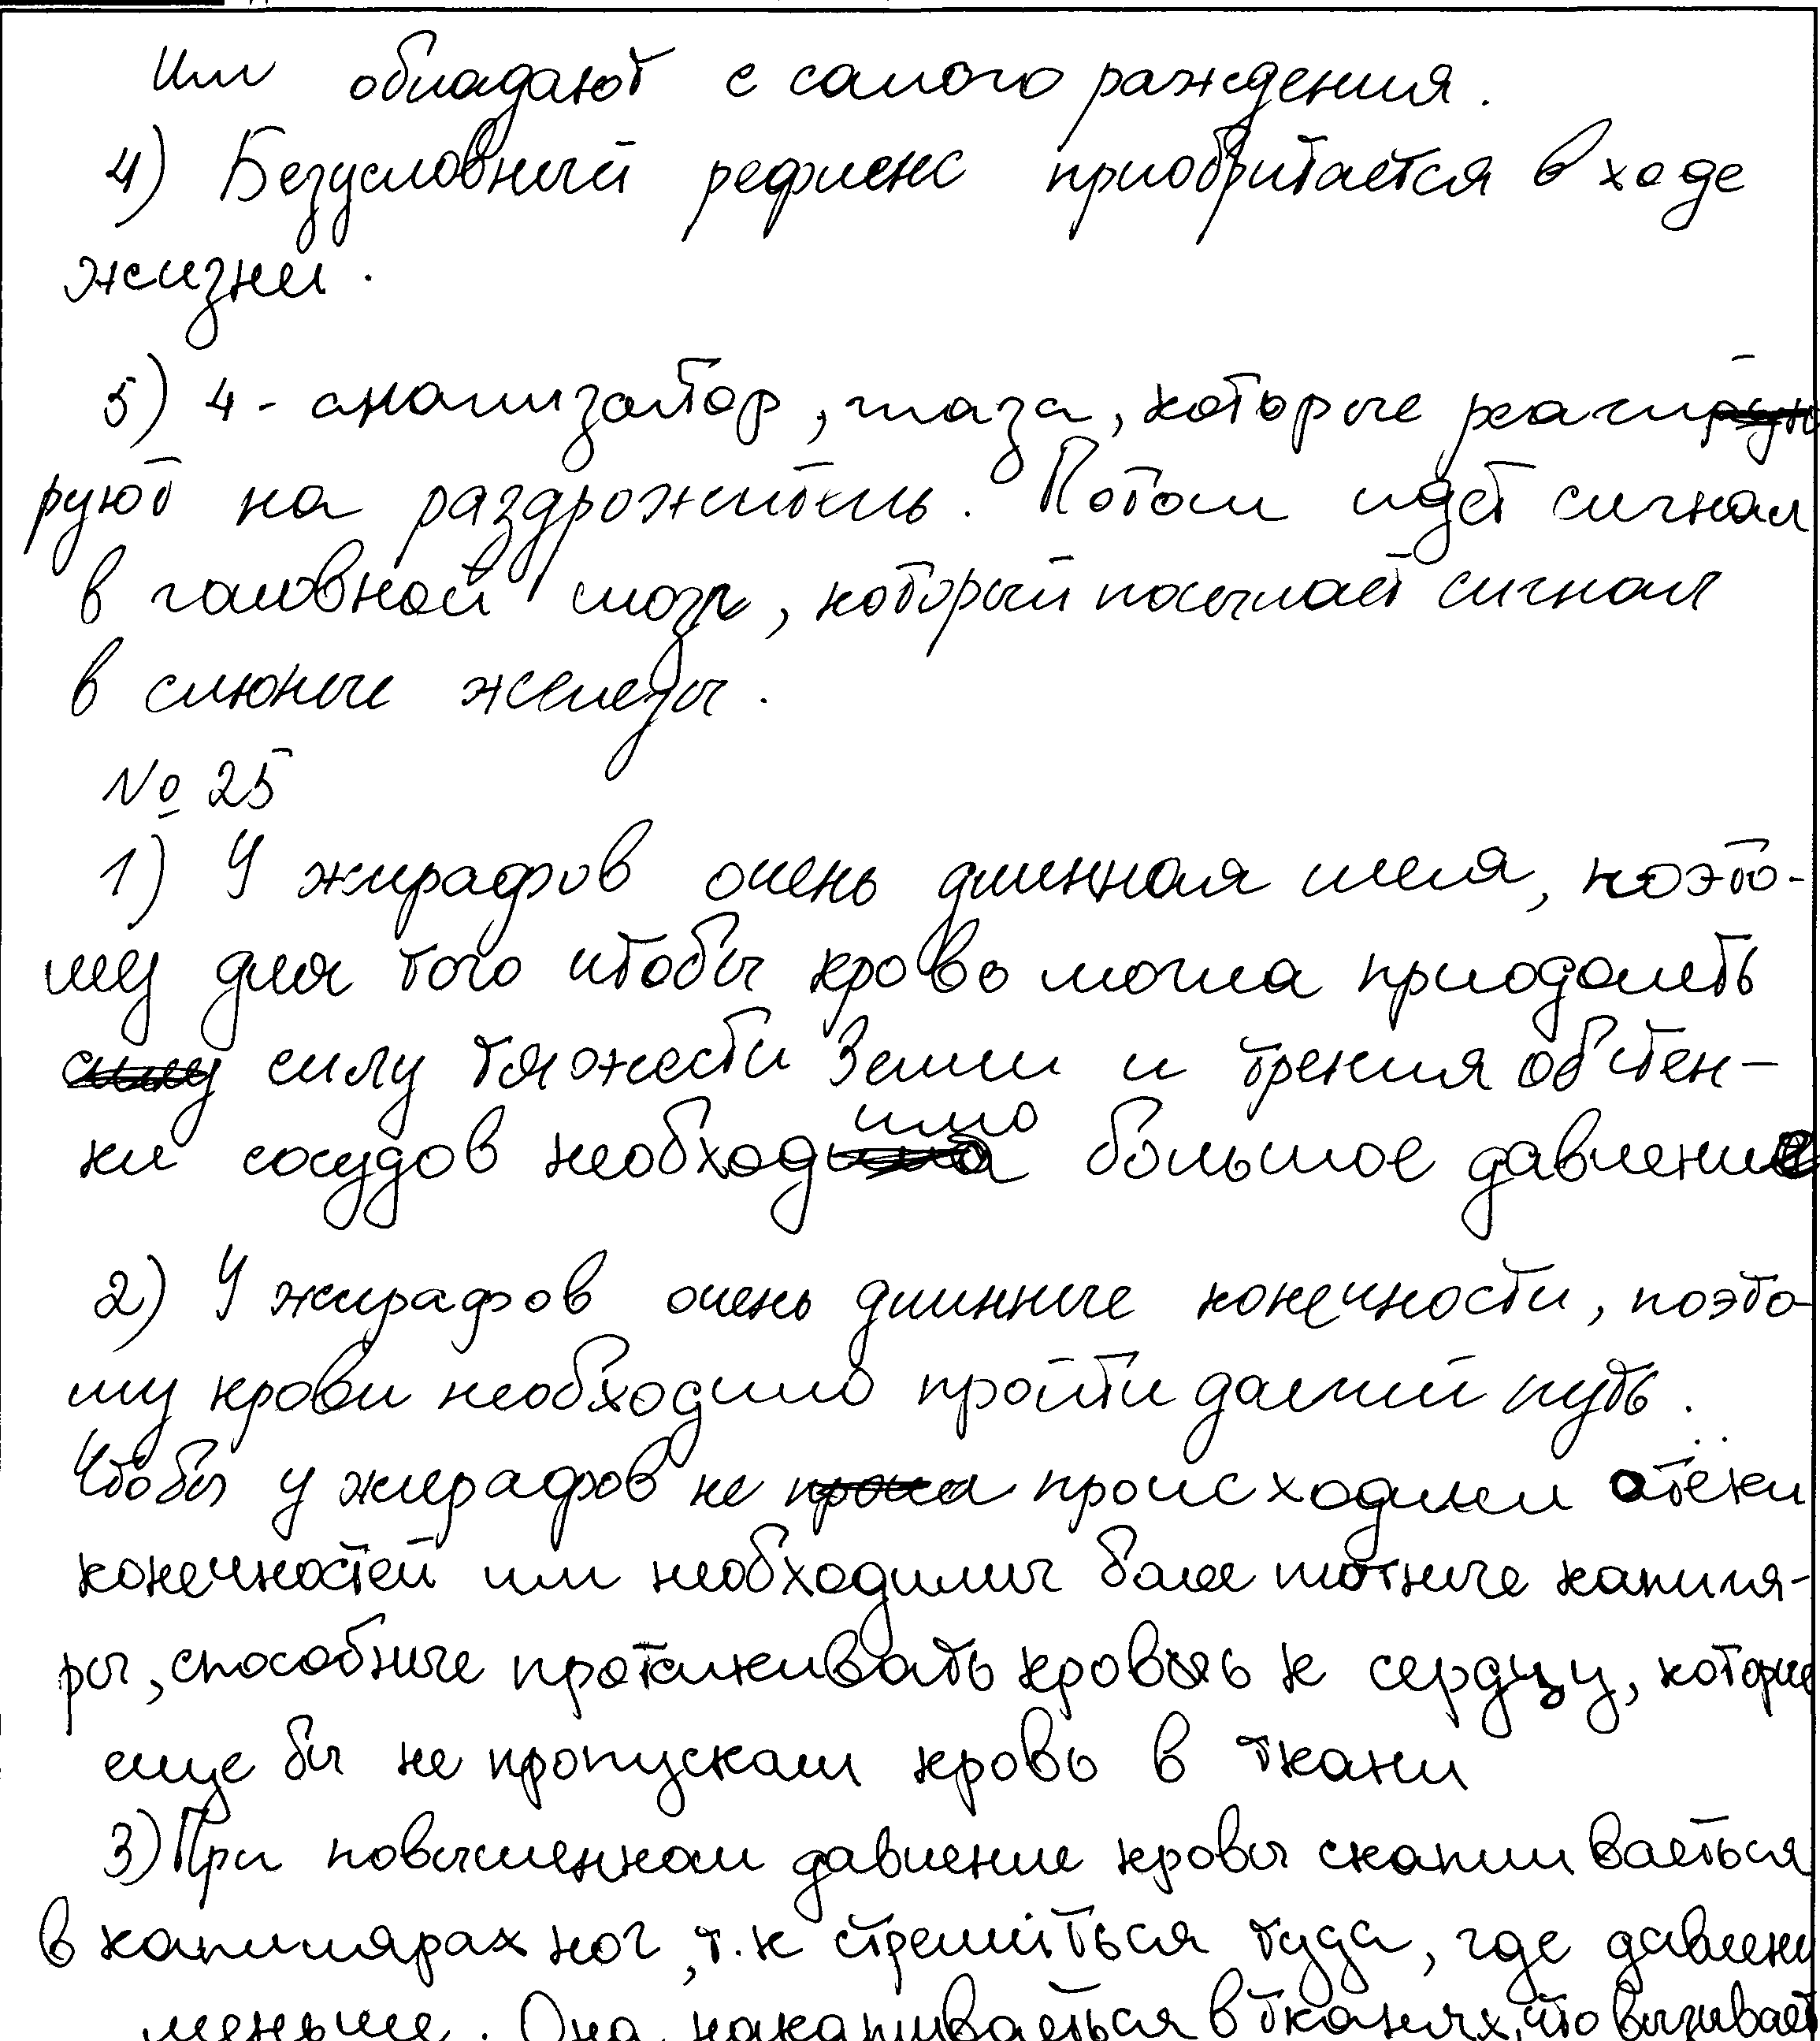 Им обладают с самого раждения.
4) Безусловный рефлекс приобритается в ходе
жизни.
5) 4 - анализатор, глаза, которые реаги
руют на раздрожитель. Потом идет сигнал
в головной мозг, который посылает сигнал
в слюные железы.
№ 25
1) У жирафов очень длинная шея, поэто-
му для того чтобы кровь могла приодолеть
силу тяжести Земли и трения об стен-
ки сосудов необходимо большое давление
2) У жирафов очень длинные конечности, поэто-
му крови необходимо пройти долгий путь.
Чтобы у жирафов не происходили отёки
конечностей им необходимы более плотные капиля-
ры, способные проталкивать кровь к сердцу, которые
еще бы не пропускали кровь в ткани
3) При повышенном давление кровы скапливаеться
в капилярах ног, т.к стремиться туда, где давлени
меньше. Она накапливаеться в тканях, что вызывает